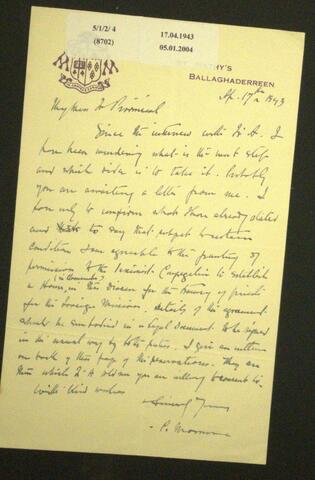 5/1/2/4
(8702)
17.04.1943
05.01.2004
THY'S
BALLAGHADERREEN
Ap. 17th 1943
My dear Fr Provincial
Since the interview with Fr A. I
have been wondering what is the next step
and which side is to take it. Probably
you are awaiting a letter from me. I
have only to confirm what I have already stated
and to say that subject to certain
conditions I am agreeable to the granting of
permission to the Congregation to establish
a House in this Diocese for the training of priests
for the Foreign Missions. Details of the agreement
should be embodied in a legal document to be signed
in the usual way by both parties. I give an outline
on back of this page of the reservations. They are
those which Fr A told me you are willing to consent to.
With kind wishes
Sincerely Yours